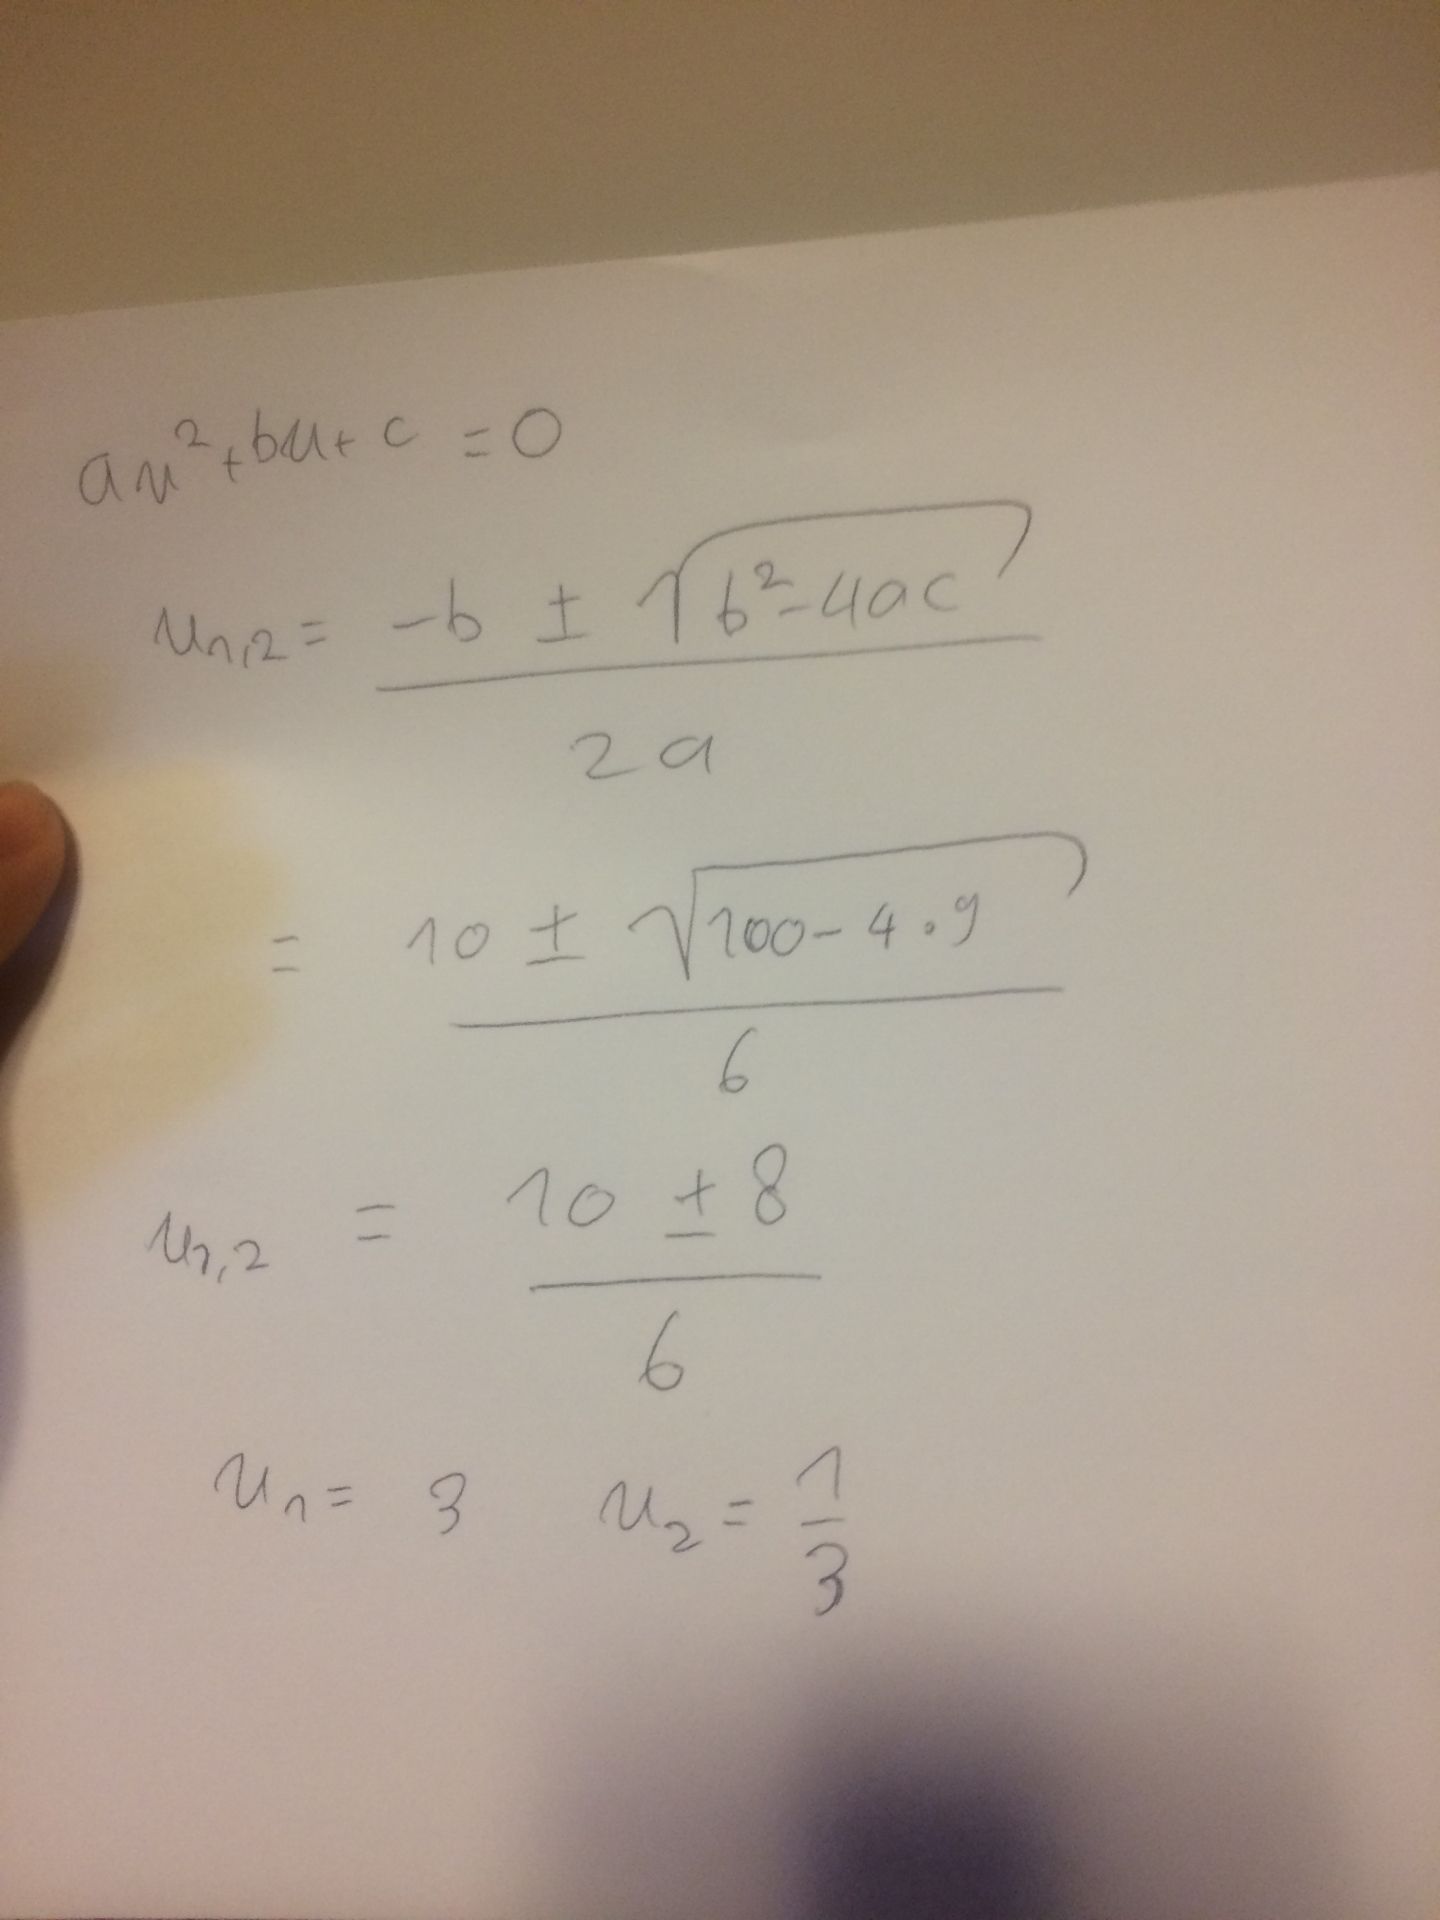 au²+bu+c = 0
u₁,₂ = (-b ± √(b²-4ac)) / 2a
= (10 ± √(100-4·9)) / 6
u₁,₂ = (10 ± 8) / 6
u₁ = 3 u₂ = 1/3